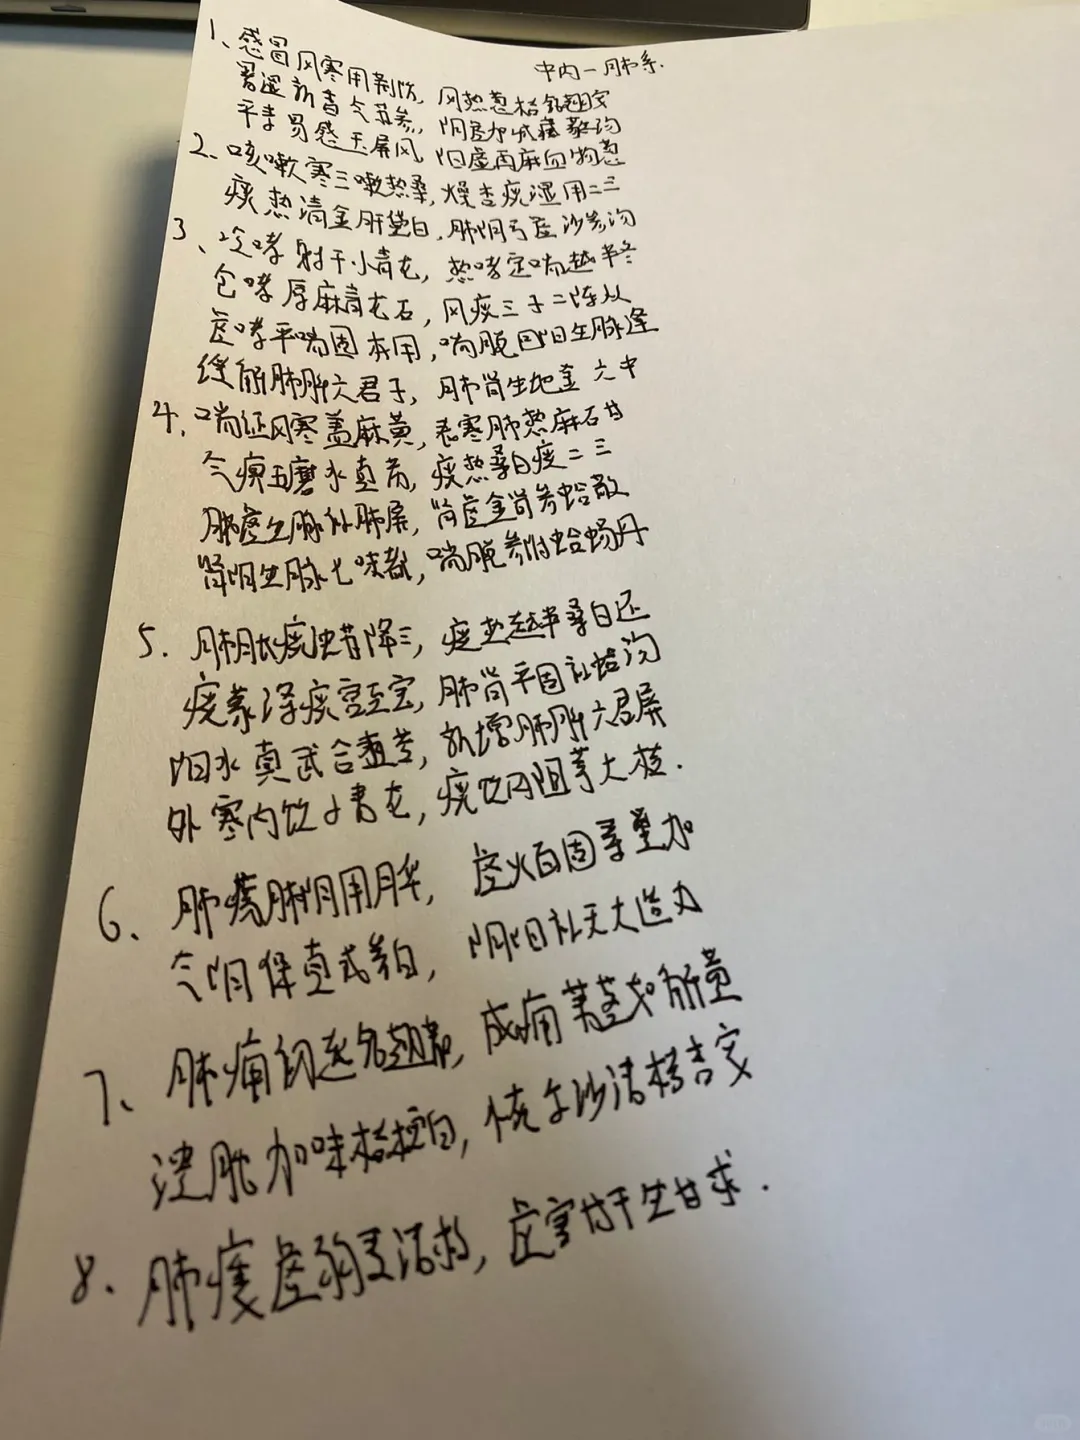 中内一肺系.
1、感冒风寒用荆防, 风热葱桔银翘安
暑湿新香气苏参, 阴虚加减葳蕤汤
平素易感玉屏风, 阳虚再麻血物葱
2、咳嗽寒三嗽热桑, 燥杏痰湿用二三
痰热清金肝黛白, 肺阴亏虚沙参汤
3、冷哮射干小青龙, 热哮定喘越半冬
包哮厚麻青龙石, 风痰三子二陈从
虚哮平喘固本用, 喘脱回阳生脉逢
缓解肺脾六君子, 肺肾生地金六中
4、喘证风寒盖麻黄, 表寒肺热麻石甘
气痹五磨水真武, 痰热桑白痰二三
肺虚生脉补肺屏, 肾虚金肾参蛤散
肾阴生脉七味都, 喘脱参附蛤蚧丹
5. 肺胀痰浊苏降三, 痰热越半桑白还
痰蒙涤痰宫至宝, 肺肾平固补蛤汤
阳水真武合五苓, 肺脾六君屏
外寒内饮小青龙, 痰饮内阻葶大枣.
6、肺痨肺阴用月华, 虚火百固秦鳖加
气阴保真参白, 阴阳补天大造力
7、肺痈初起银翘, 成痈苇茎如解黄
溃脓加味桔梗白, 恢复沙清桔杏安
8、肺痿虚弱麦活救, 虚寒甘干生甘求.